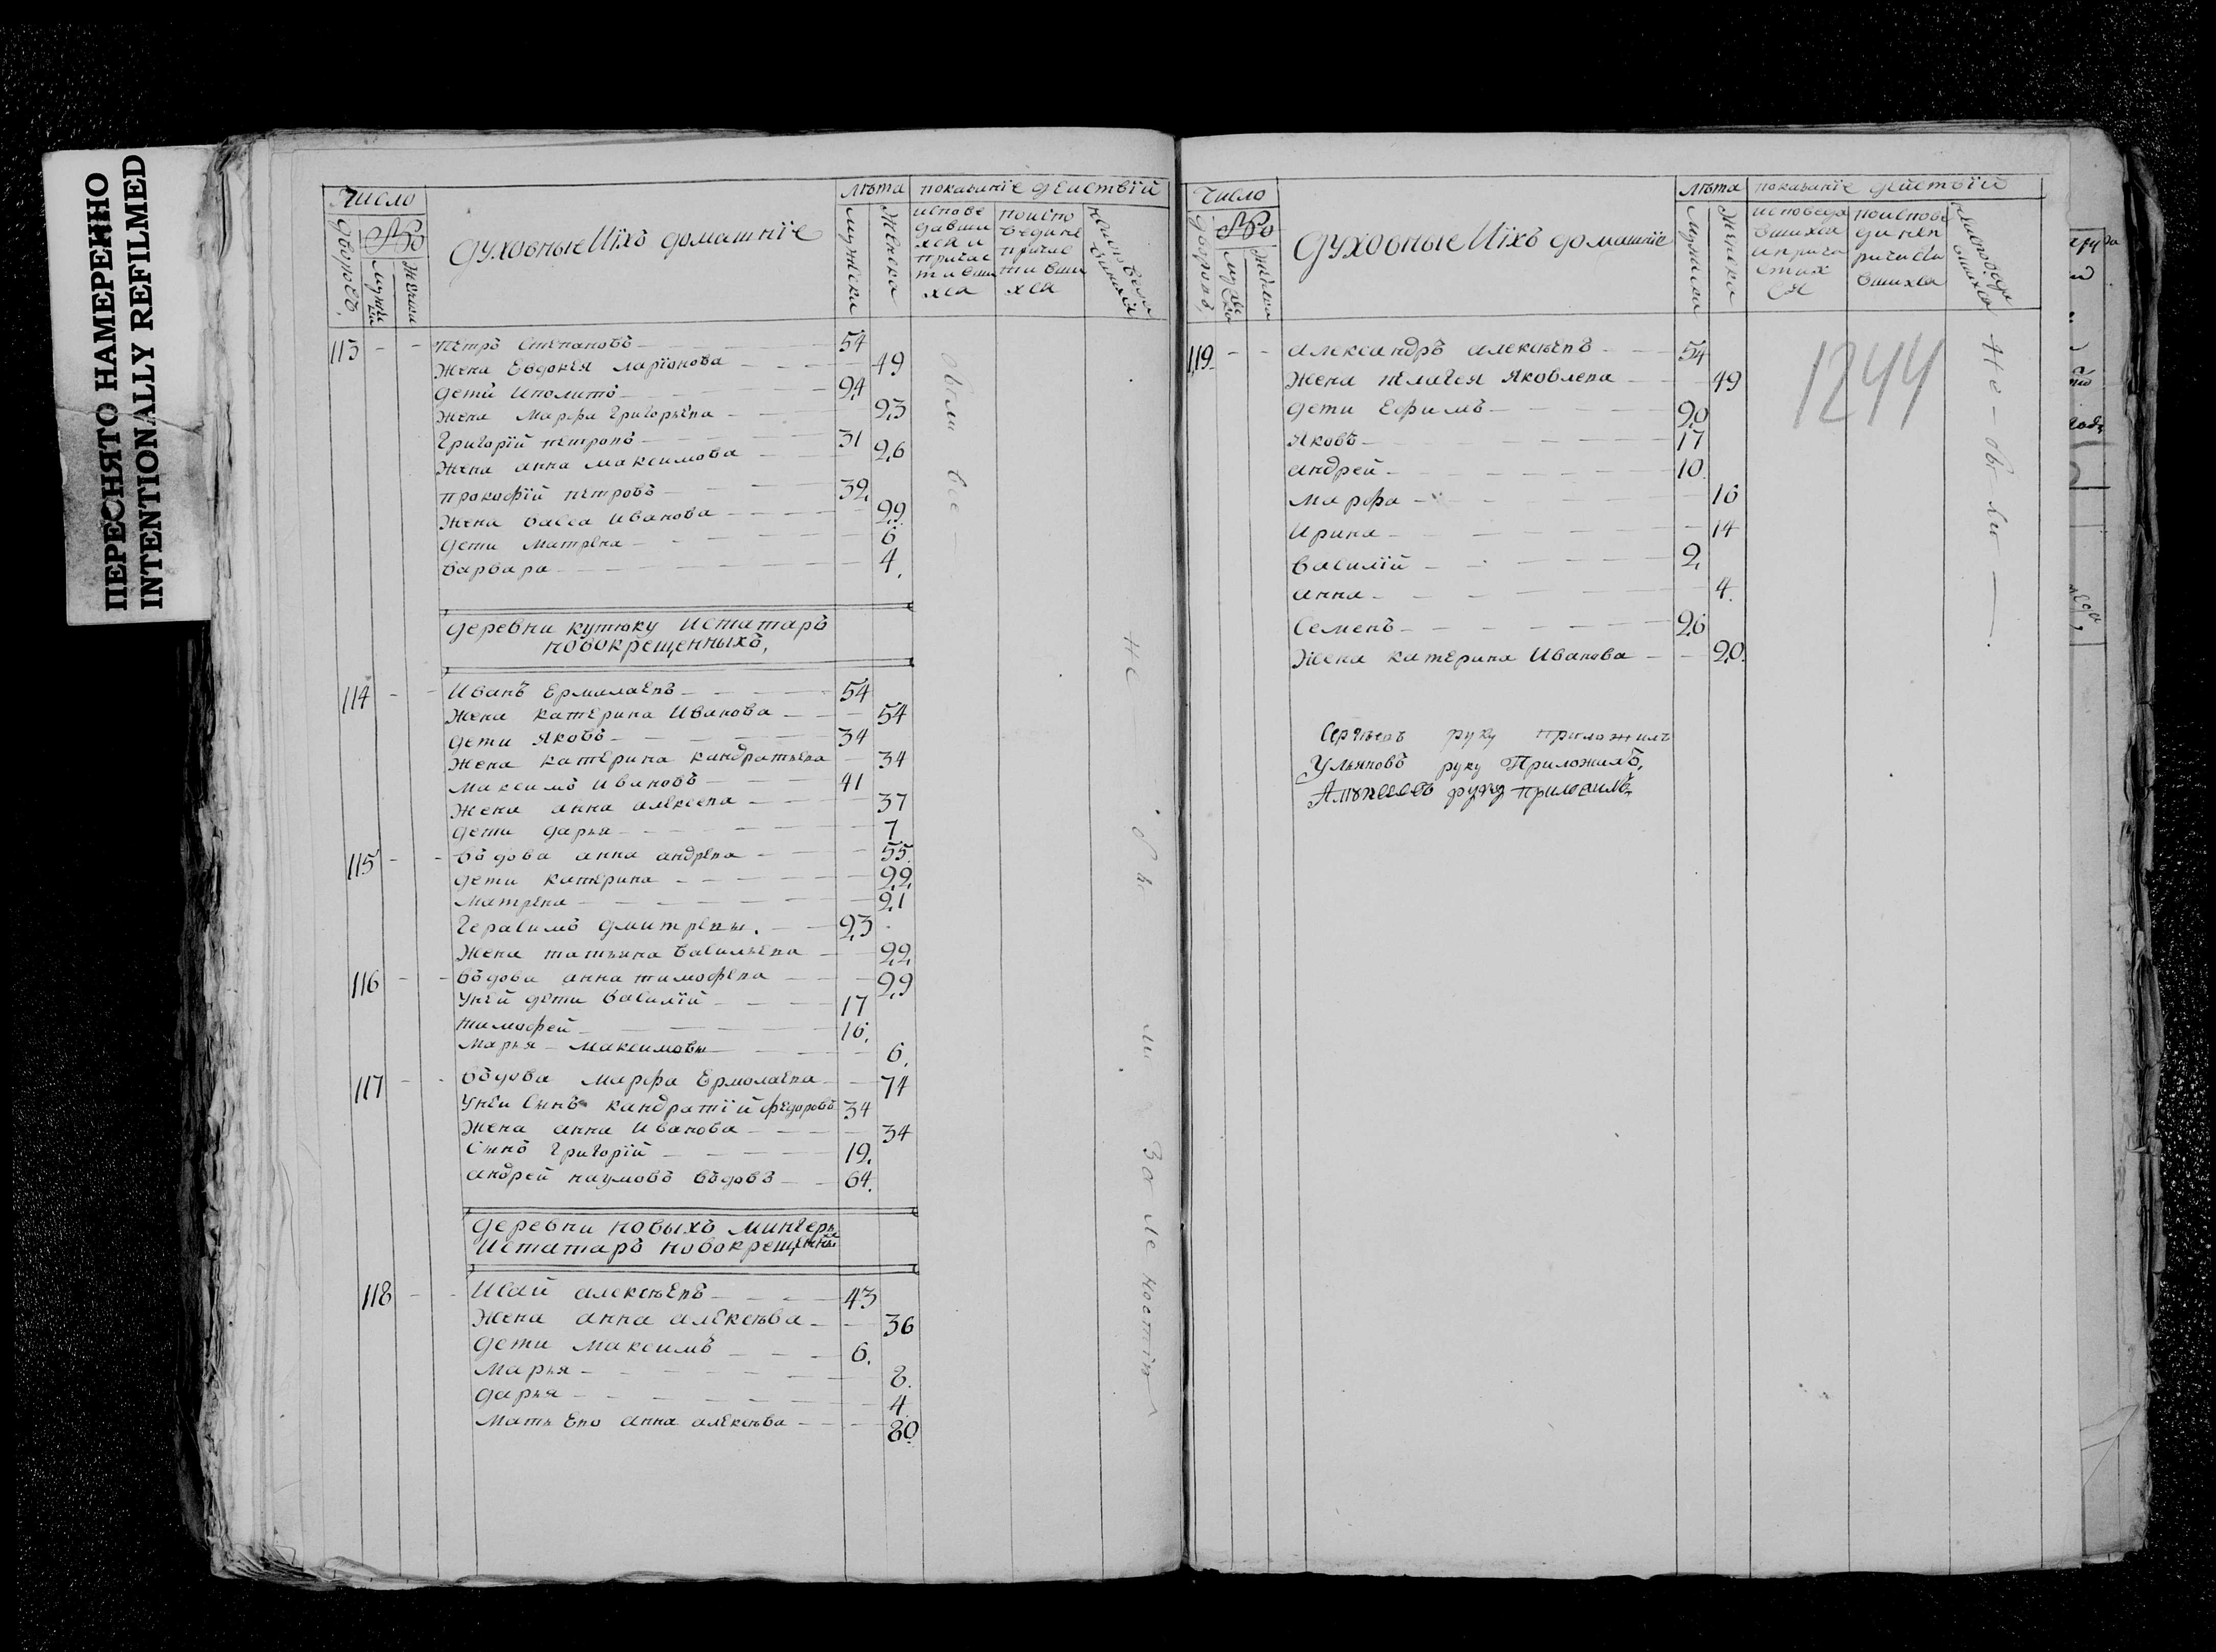 ПЕРЕСНЯТО НАМЕРЕННО
INTENTIONALLY REFILMED
Число
№
дворовъ
мужеска
женска
духовные Иихъ домашніе
лѣта
мужеска
женска
показаніе действій
испове
давши
хся и
причас
тивши
хся
поиспо
ведине
причас
тивши
хся
113 - - петръ Степановъ - 54
жена Евдокея ларіонова - 49
дети иполитъ - 24
жена Марфа григорьева - 23
григорій петровъ - 31
жена анна максимова - 26
прокофій петровъ - 32
жена васса иванова - 29
дети матрена - 6
варвара - 4
были все
деревни кутюку истатаръ
новокрещенныхъ,
114 - - иванъ Ермилаевъ - 54
жена катерина иванова - 54
дети яковъ - 34
жена катерина кандратьева - 34
максимъ ивановъ - 41
жена анна алексева - 37
дети дарья - 7
115 - - въдова анна андрева - 55.
дети катерина - 22
матрена - 21
герасимъ дмитревы. - 23
жена татьяна васильева - 22.
116 - - въдова анна тимофева - 29
уней дети василій - 17
тимофей - 16.
марья максимовы - 6.
117 - - въдова марфа Ермолаева - 74
уней сынъ кандратій федоровъ 34
жена анна иванова - 34
сынъ григорій - 12.
андрей наумовъ въдовъ - 64.
деревни новыхъ мингеръ
истатаръ новокрещенный
118 - - исай алексѣевъ - 43
жена анна алексѣва - 36
дети максимъ - 6.
марья - 8.
дарья - 4.
мать ево анна алексѣва - 80.
не бы ли За леностію
число
№
дворовъ
мужеска
женска
духовные Иихъ домашніе
лѣта
мужеска
женска
показаніе действій
исповеда
вшихса
иприча
стих
ся
поиспове
ди неп
ричасти
вшихса
119 - - александръ алексѣевъ - 54
жена пелагея яковлева - 49
дети Ефимъ - 20
яковъ - 17
андрей - 10
марфа - 16
ирина - 14
василій - 2,
анна - 4.
семенъ - 26
жена катерина иванова - 20.
1244
не - бы ли
Сергѣевъ руку приложилъ
Ульяновъ руку Приложилъ,
Алѣксеевъ руку приложилъ